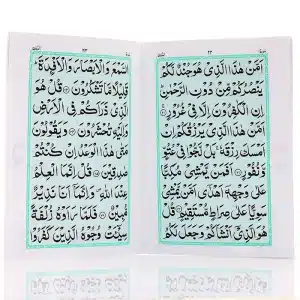 ٢٢
اَمَّنْ هٰذَا الَّذِيْ هُوَ جُنْدٌ لَّكُمْ
يَنْصُرُكُمْ مِّنْ دُوْنِ الرَّحْمٰنِ
اِنِ الْكٰفِرُوْنَ اِلَّا فِيْ غُرُوْرٍ
اَمَّنْ هٰذَا الَّذِيْ يَرْزُقُكُمْ اِنْ
اَمْسَكَ رِزْقَهٗ بَلْ لَّجُّوْا فِيْ عُتُوٍّ
وَّنُفُوْرٍ اَفَمَنْ يَّمْشِيْ مُكِبًّا
عَلٰى وَجْهِهٖٓ اَهْدٰٓى اَمَّنْ يَّمْشِيْ
سَوِيًّا عَلٰى صِرَاطٍ مُّسْتَقِيْمٍ قُلْ
هُوَ الَّذِيْٓ اَنْشَاَكُمْ وَجَعَلَ لَكُمُ
٢٣
السَّمْعَ وَالْاَبْصَارَ وَالْاَفْئِدَةَ
قَلِيْلًا مَّا تَشْكُرُوْنَ قُلْ هُوَ
الَّذِيْ ذَرَاَكُمْ فِي الْاَرْضِ
وَاِلَيْهِ تُحْشَرُوْنَ وَيَقُوْلُوْنَ
مَتٰى هٰذَا الْوَعْدُ اِنْ كُنْتُمْ
صٰدِقِيْنَ قُلْ اِنَّمَا الْعِلْمُ
عِنْدَ اللّٰهِ وَاِنَّمَآ اَنَا نَذِيْرٌ
مُّبِيْنٌ فَلَمَّا رَاَوْهُ زُلْفَةً
سِيْٓئَتْ وُجُوْهُ الَّذِيْنَ كَفَرُوْا